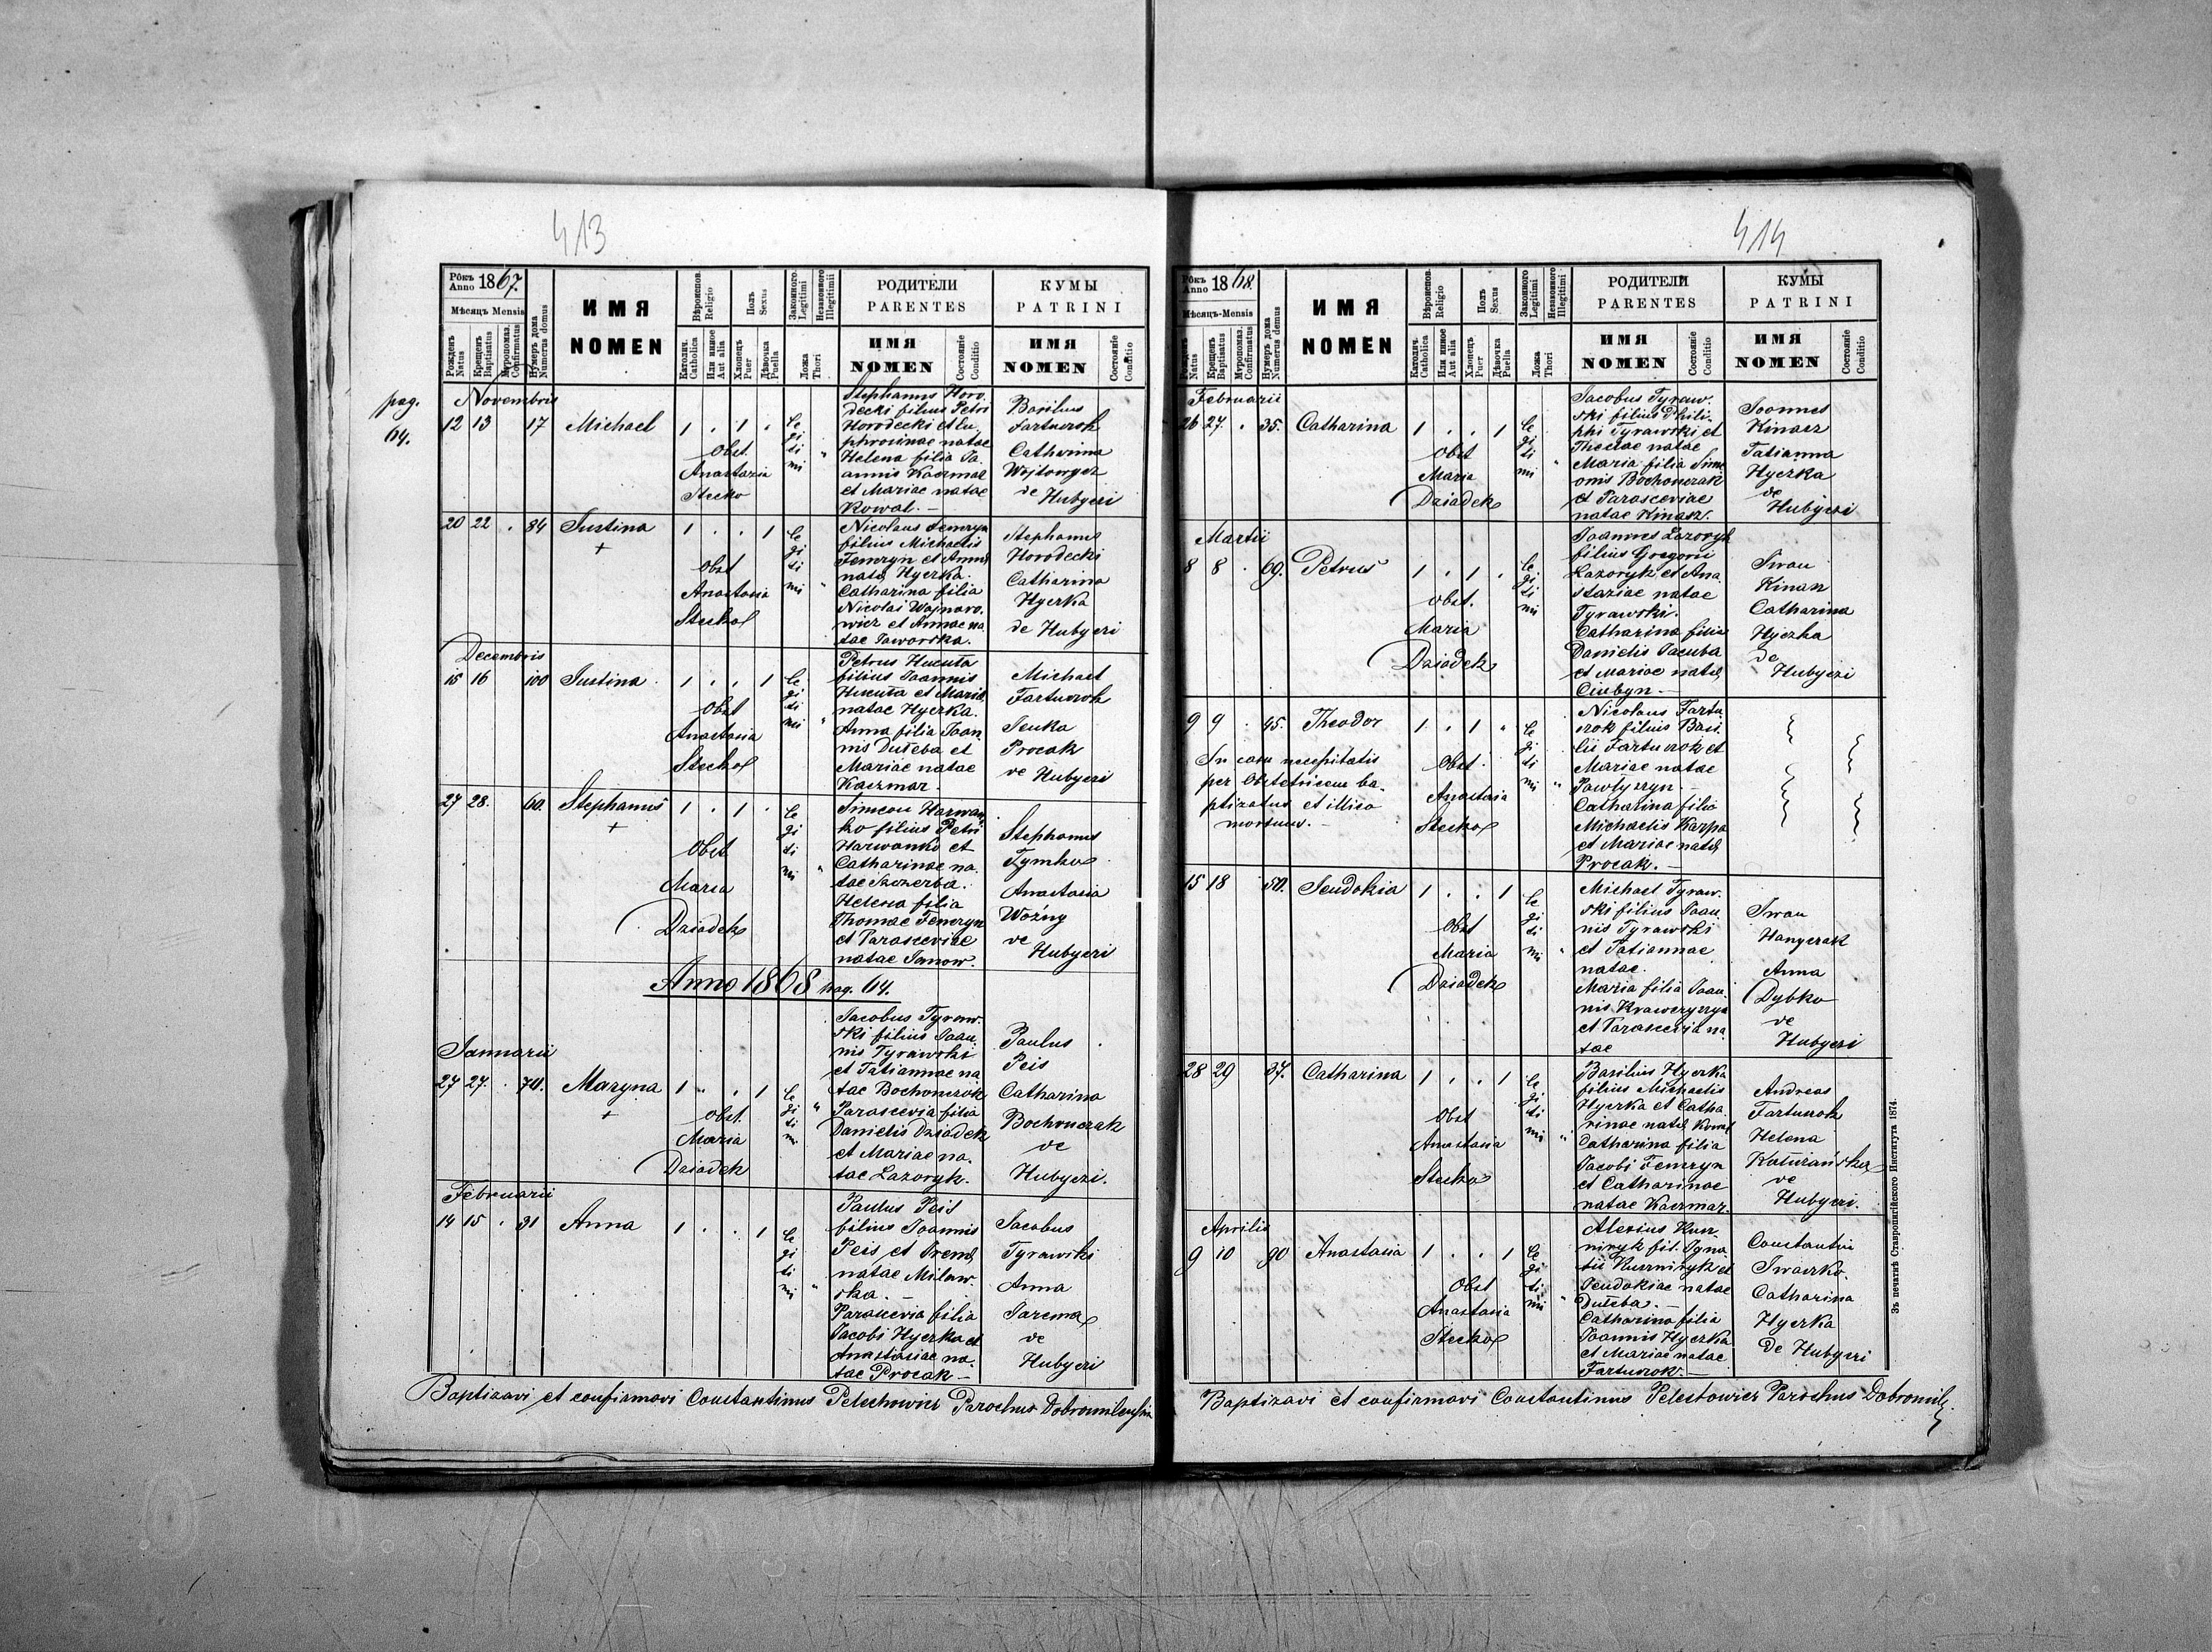 413
Рôкъ Anno 1867.
Мѣсяцъ Mensis
Рожденъ Natus
Крещенъ Baptisatus
Мvропомаз. Confirmatus
Нумеръ дома Numerus domus
ИМЯ
NOMEN
Вѣроиспов. Religio
Католич. Catholica
Или инное Aut alia
Полъ Sexus
Хлопецъ Puer
Дѣвочка Puella
Законного Legitimi
Незаконного Illegitimi
Ложа Thori
РОДИТЕЛИ
PARENTES
ИМЯ
NOMEN
Состояніе Conditio
КУМЫ
PATRINI
ИМЯ
NOMEN
Состояніе Conditio
pag.
64.
Novembris
12 13 17 Michael 1 . 1 .
Obst.
Anastazia
Stecko
le
gi
ti
mi "
Stephanus Horo
decki filius Petri
Horodecki et Eu
phrosinae natae
Helena filia Jo
annis Kaczmar
et Mariae natae
Kowal. —
Basilius
Fartuszok
Catharina
Wojtowycz
de Hubyczi
20 22 . 84 Justina 1 . . 1
+
obst
Anastasia
Steckol
le
gi
ti
mi "
Nicolaus Femczyn
filius Michaelis
Femczyn et Annae
natae Hyczka.
Catharina filia
Nicolai Wojnaro
wicz et Annae na
tae Jaworska.
Stephanus
Horodecki
Catharina
Hyczka
de Hubyczi
Decembris
15 16 100 Justina 1 . . 1
Obst
Anastasia
Steckol
le
gi
ti
mi "
Petrus Hucuta
filius Joannis
Hucuta et Mariae
natae Hyczka.
Anna filia Joan
nis Duteba et
Mariae natae
Kaczmar.
Michael
Fartuszok
Senka
Procak
de Hubyczi
27 28. 60. Stephanus 1 . 1 .
+
Obst
Maria
Dziadek
le
gi
ti
mi "
Simeon Harwan
ko filius Petri
Harwanko et
Catharinae na
tae Szczerba.
Helena filia
Thomae Femczyn
et Parasceviae
natae Janow.
Stephanus
Tymko
Anastasia
Woźny
de
Hubyczi
Anno 1868 pag. 64.
Januarii
27 27. . 74. Maryna 1 . . 1
+
obst.
Maria
Dziadek
le
gi "
ti
mi
Jacobus Tyraw
ski filius Joan
nis Tyrawski
et Tatiannae na
tae Bochonczok
Parascevia filia
Danielis Dziadek
et Mariae na
tae Lazoryk.
Paulus
Peis
Catharina
Bochonczak
de
Hubyczi.
Februarii
14 15 . 31 Anna 1 . . 1
le
gi
ti
mi "
Paulus Peis
filius Joannis
Peis et Irenae
natae Milaw
ska. —
Parascevia filia
Jacobi Hyczka et
Anastasiae na
tae Procak —
Jacobus
Tyrawski
Anna
Jarema
de
Hubyczi
Baptizavi et confirmavi Constantinus Pelechowicz Parochus Dobromilensis
414
Рôкъ Anno 1868.
Мѣсяцъ-Mensis
Рожденъ Natus
Крещенъ Baptisatus
Мvропомаз. Confirmatus
Нумеръ дома Numerus domus
ИМЯ
NOMEN
Вѣроиспов. Religio
Католич. Catholica
Или инное Aut alia
Полъ Sexus
Хлопецъ Puer
Дѣвочка Puella
Законного Legitimi
Незаконного Illegitimi
Ложа Thori
РОДИТЕЛИ
PARENTES
ИМЯ
NOMEN
Состояніе Conditio
КУМЫ
PATRINI
ИМЯ
NOMEN
Состояніе Conditio
Februarii
26 27. . 35. Catharina 1 . . 1
Obst
Maria
Dziadek
le
gi
ti
mi "
Jacobus Tyraw
ski filius Phili
phi Tyrawski et
Theclae natae
Maria filia Sime
onis Bochonczak
et Parasceviae
natae Kinasz.
Joannes
Kinasz
Tatianna
Hyczka
de
Hubyczi
Martii
8 8 . 69. Petrus 1 . 1 .
obst.
Maria
Dziadek
le
gi
ti
mi
Joannes Lazoryk
filius Gregorii
Lazoryk et Ana
staziae natae
Tyrawski.
Catharina filia
Danielis Jacuba
et Mariae natae
Ciubyn. —
Iwan
Kinasz
Catharina
Hyczka
de
Hubyczi
9 9 . 45. Theodor 1 . 1 .
In casu necessitatis
per Obstetricem ba
ptizatus et illico
mortuus. —
Obst.
Anastasia
Steckol
le
gi
ti
mi "
Nicolaus Fartu
szok filius Basi
lii Fartuszok et
Mariae natae
Pawlyszyn. —
Catharina filia
Michaelis Karpa
et Mariae natae
Procak. —
15 18 50. Jeudokia 1 . . 1
Obst
Maria
Dziadek
le
gi
ti
mi "
Michael Tyraw
ski filius Joan
nis Tyrawski
et Tatiannae
natae.
Maria filia Joan
nis Krawczyszyn
et Parascevia na
tae
Iwan
Hanyczak
Anna
Dybko
de
Hubyczi
28 29 37. Catharina 1 . . 1
Obst
Anastasia
Stecko
le
gi
ti
mi "
Basilius Hyczka
filius Michaelis
Hyczka et Catha
rinae natae Kowal
Catharina filia
Jacobi Femczyn
et Catharinae
natae Kaczmar.
Andreas
Fartuszok
Helena
de
Hubyczi.
Aprilis
9 10 90 Anastasia 1 . . 1
Obst
Anastasia
Steckol
le
gi
ti
mi "
Alexius Kusz
niryk fil. Igna
tii Kuszniryk et
Jeudokiae natae
Duteba. —
Catharina filia
Joannis Hyczka
et Mariae natae
Fartuszok. —
Constantin
Iwaszko.
Catharina
Hyczka
de Hubyczi
Зъ печатнѣ Ставропигійского Института 1874.
Baptizavi et confirmavi Constantinus Pelechowicz Parochus Dobromil.